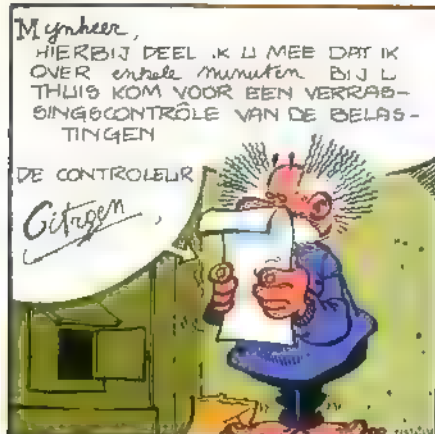 Mynheer,
HIERBIJ DEEL IK U MEE DAT IK
OVER enkele minuten BIJ U
THUIS KOM VOOR EEN VERRAS-
SINGSCONTRÔLE VAN DE BELAS-
TINGEN
DE CONTROLEUR
Citrgen,